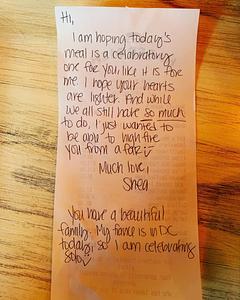 Hi,
I am hoping today's
meal is a celebratory
one for you, like it is for
me. I hope your hearts
are lighter. And while
we all still have so much
to do, I just wanted to
be able to high five
you from afar
Much love,
Shea
You have a beautiful
family. My fiance is in DC
today, so I am celebrating
solo